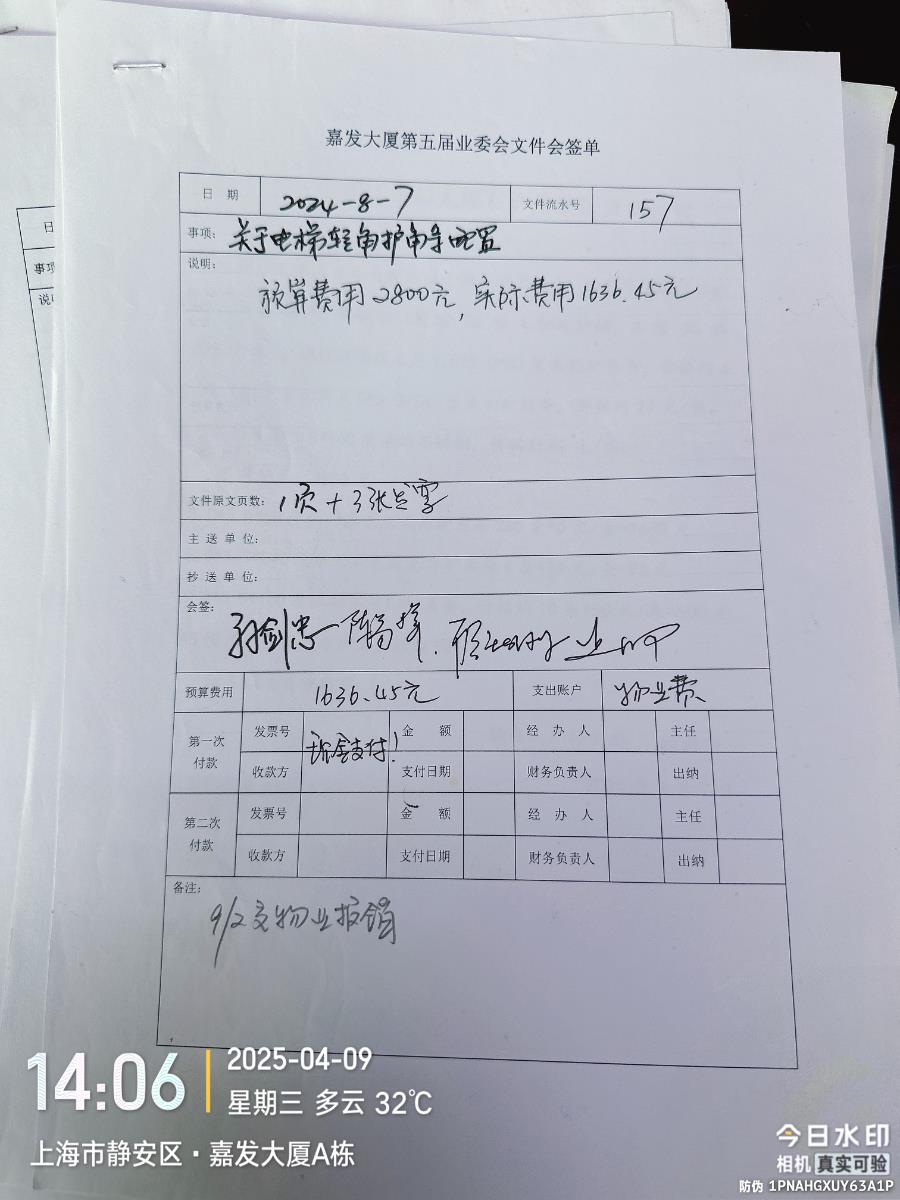 嘉发大厦第五届业委会文件会签单
日 期 2024-8-7 文件流水号 157
事项: 关于电梯轻角护角等配置
说明:
预算费用2800元,实际费用1636.45元
文件原文页数: 1页+3张发票
主 送 单 位:
抄 送 单 位:
会签: 孙剑忠
预算费用 1636.45元 支出账户 物业费
第一次付款 发票号 现金支付! 金 额 经 办 人 主任
收款方 支付日期 财务负责人 出纳
第二次付款 发票号 金 额 经 办 人 主任
收款方 支付日期 财务负责人 出纳
备注:
9/2交物业报销
日
事项
说明
14:06 2025-04-09
星期三 多云 32℃
上海市静安区·嘉发大厦A栋
今日水印
相机 真实可验
防伪 1PNAHGXUY63A1P